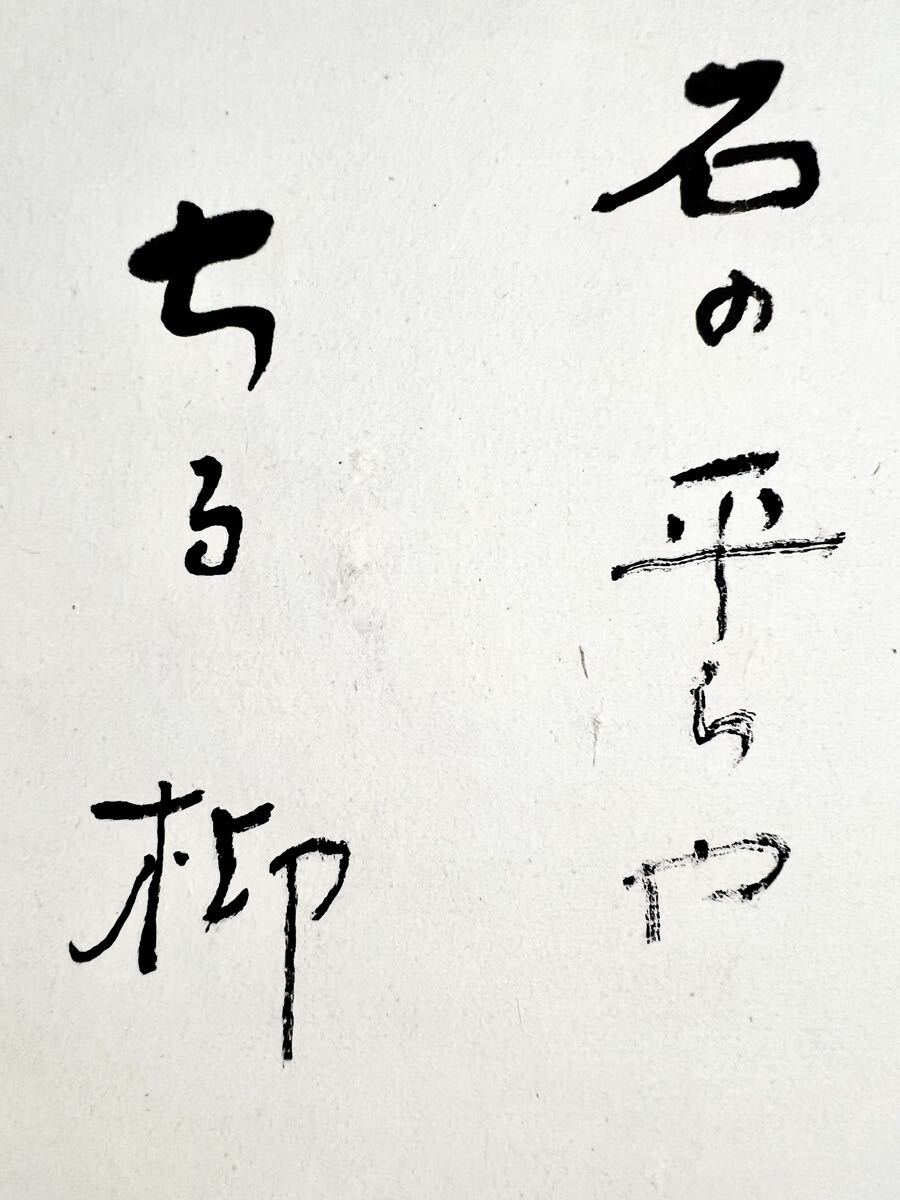 石の平らや
ちる柳